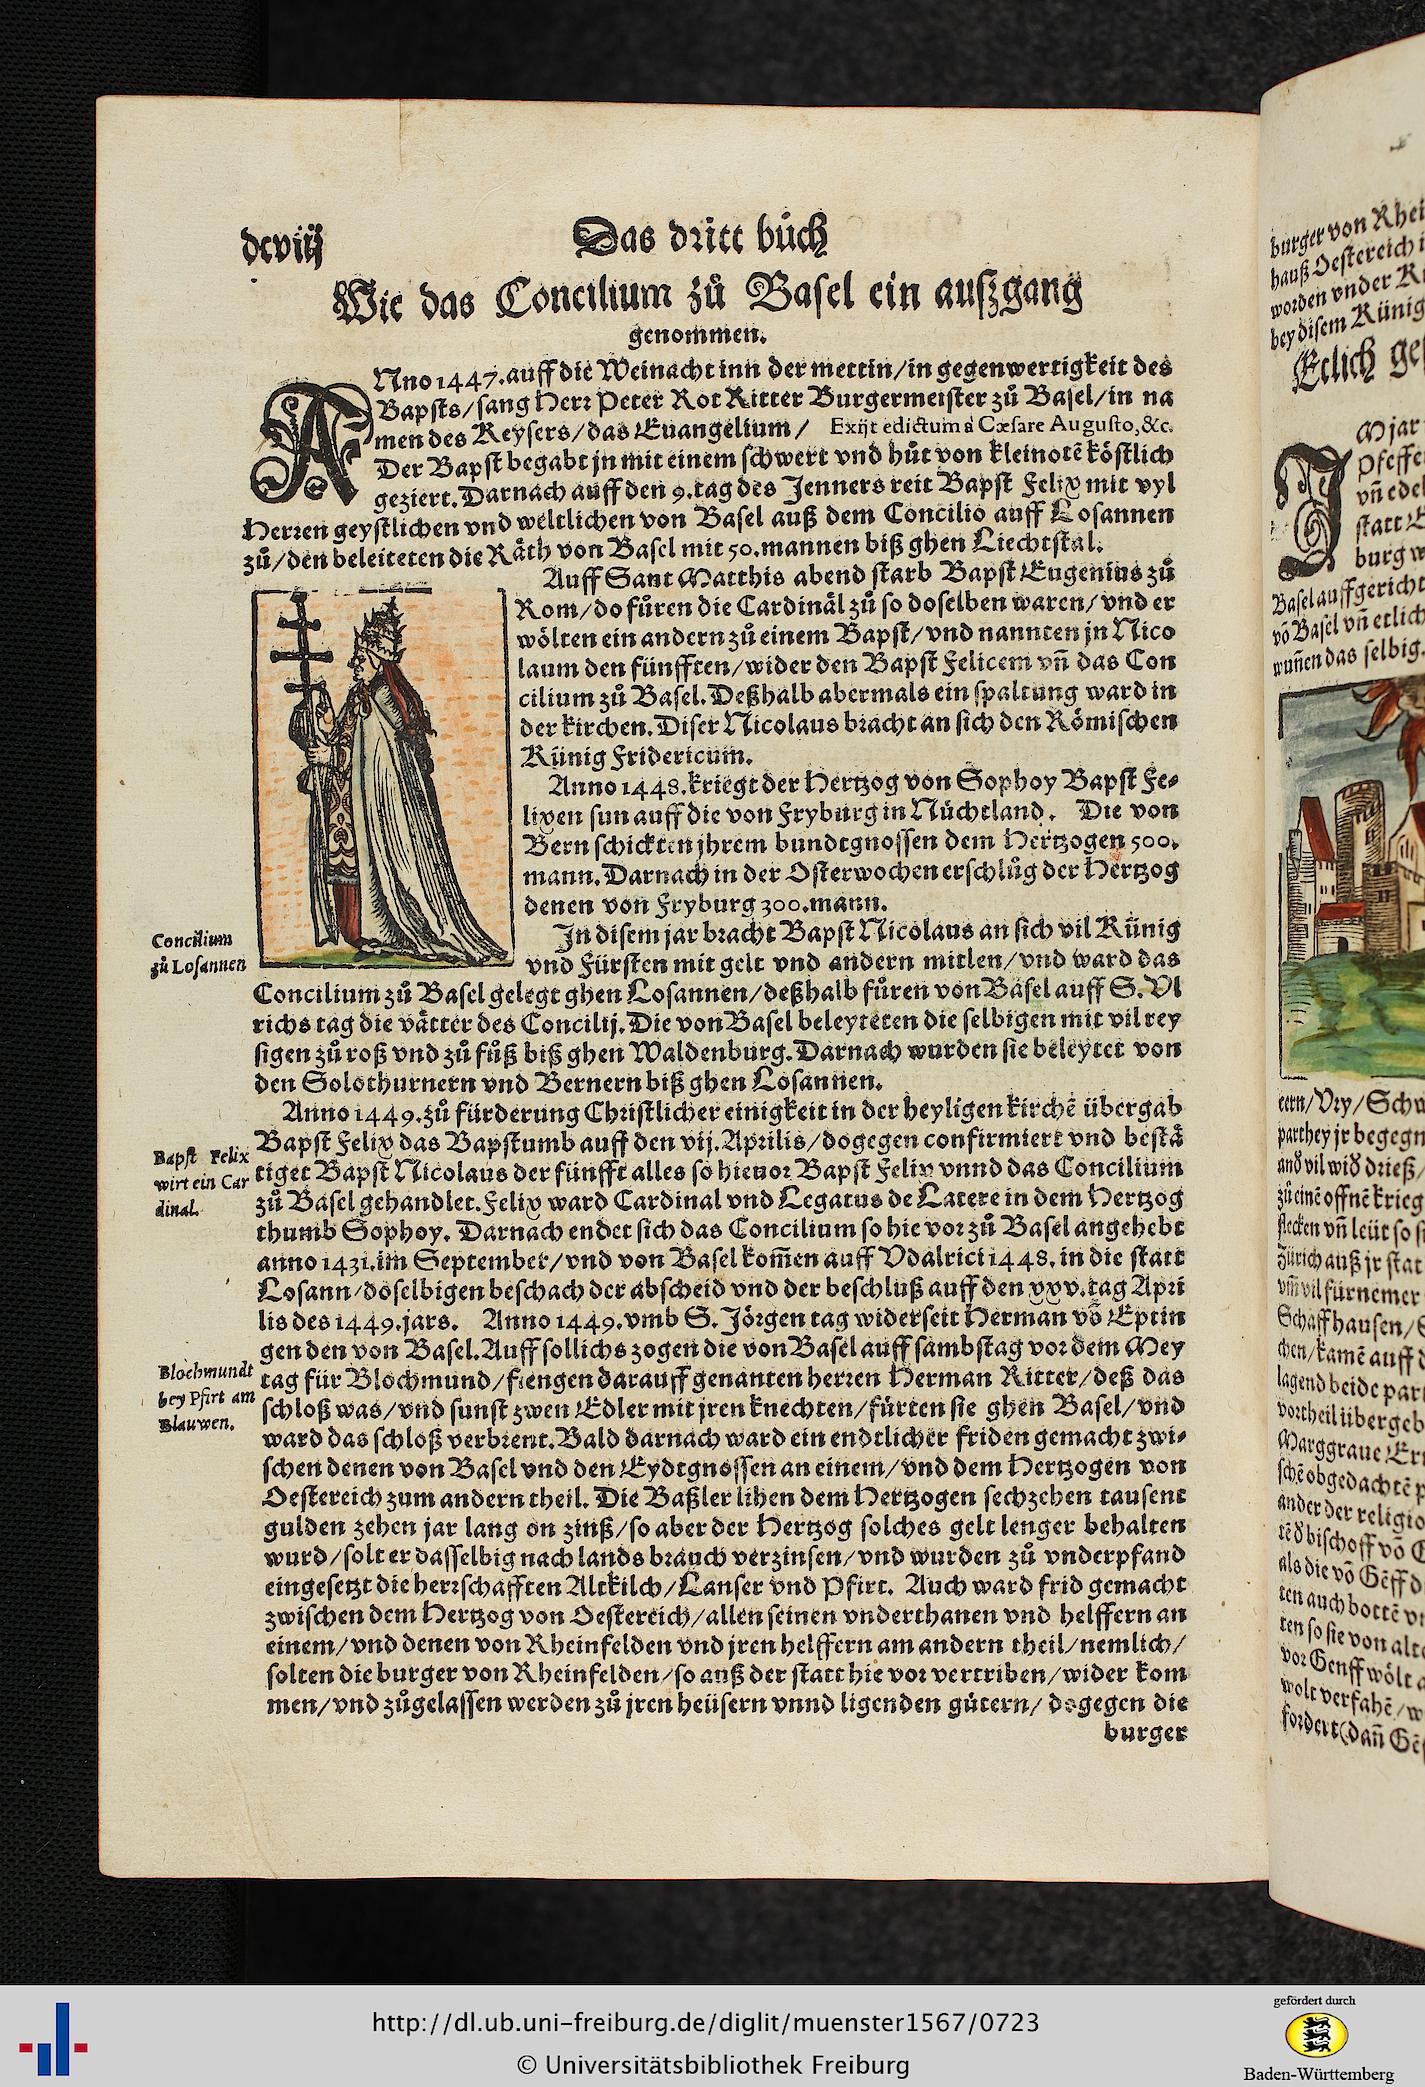 dcviij
Das dritt bůch
Wie das Concilium zů Basel ein auszgang
genommen.
ANno 1447. auff die Weinacht inn der mettin/in gegenwertigkeit des
Bapsts/sang Herr Peter Rot Ritter Burgermeister zů Basel/in na
men des Keysers/das Euangelium/ Exijt edictum à Cæsare Augusto,&c.
Der Bapst begabt jn mit einem schwert vnd hůt von kleinotē köstlich
geziert. Darnach auff den 9. tag des Jenners reit Bapst Felix mit vyl
Herren geystlichen vnd weltlichen von Basel auß dem Concilio auff Losannen
zů/den beleiteten die Räth von Basel mit 50. mannen biß ghen Liechtstal.
Auff Sant Matthis abend starb Bapst Eugenius zů
Rom/do fůren die Cardinäl zů so doselben waren/vnd er
wölten ein andern zů einem Bapst/vnd nannten jn Nico
laum den fünfften/wider den Bapst Felicem vn̄ das Con
cilium zů Basel. Deßhalb abermals ein spaltung ward in
der kirchen. Diser Nicolaus bracht an sich den Römischen
Künig Fridericum.
Anno 1448. kriegt der Hertzog von Sophoy Bapst Fe-
lixen sun auff die von Fryburg in Nüchtland. Die von
Bern schickten jhrem bundtgnossen dem Hertzogen 500.
mann. Darnach in der Osterwochen erschlůg der Hertzog
denen von Fryburg 300. mann.
In disem jar bracht Bapst Nicolaus an sich vil Künig
vnd Fürsten mit gelt vnd andern mitlen/vnd ward das
Concilium
zů Losannen
Concilium zů Basel gelegt ghen Losannen/deßhalb fůren von Basel auff S. Vl
richs tag die vätter des Concilij. Die von Basel beleyteten die selbigen mit vil rey
sigen zů roß vnd zů fůß biß ghen Waldenburg. Darnach wurden sie beleytet von
den Solothurnern vnd Bernern biß ghen Losannen.
Anno 1449. zů fürderung Christlicher einigkeit in der heyligen kirchē übergab
Bapst Felix das Bapstumb auff den vij. Aprilis/dogegen confirmiert vnd bestä
Bapst Felix
wirt ein Car
dinal.
tiget Bapst Nicolaus der fünfft alles so hieuor Bapst Felix vnnd das Concilium
zů Basel gehandlet. Felix ward Cardinal vnd Legatus de Latere in dem Hertzog
thumb Sophoy. Darnach endet sich das Concilium so hie vor zů Basel angehebt
anno 1431. im September/vnd von Basel kom̄en auff Vdalrici 1448. in die statt
Losann/doselbigen beschach der abscheid vnd der beschluß auff den xxv. tag Apri
lis des 1449. jars. Anno 1449. vmb S. Jörgen tag widerseit Herman vō Eptin
gen den von Basel. Auff sollichs zogen die von Basel auff sambstag vor dem Mey
Blochmundt
bey Pfirt am
Blauwen.
tag für Blochmund/fiengen darauff genanten herren Herman Ritter/deß das
schloß was/vnd sunst zwen Edler mit jren knechten/fürten sie ghen Basel/vnd
ward das schloß verbrent. Bald darnach ward ein endtlicher friden gemacht zwi-
schen denen von Basel vnd den Eydtgnossen an einem/vnd dem Hertzogen von
Oestereich zum andern theil. Die Baßler lihen dem Hertzogen sechzehen tausent
gulden zehen jar lang on zinß/so aber der Hertzog solches gelt lenger behalten
wurd/solt er dasselbig nach lands brauch verzinsen/vnd wurden zů vnderpfand
eingesetzt die herrschafften Altkilch/Lanser vnd Pfirt. Auch ward frid gemacht
zwischen dem Hertzog von Oestereich/allen seinen vnderthanen vnd helffern an
einem/vnd denen von Rheinfelden vnd jren helffern am andern theil/nemlich/
solten die burger von Rheinfelden/so auß der statt hie vor vertriben/wider kom
men/vnd zůgelassen werden zů jren heüsern vnnd ligenden gütern/ dogegen die
burger
burger von Rhei
hauß Oestereich
worden vnder
bey disem Künig
Etlich
M jar
vn̄ edel
statt
burg
Basel auffgericht
vō Basel vn̄ etlich
wun̄en das selbig.
ern/Vry/Schw
parthey jr begegn
and vil wid drieß/
zů einē offnē krieg
flecken vn̄ leüt so
Zürich auß jr stat
vn̄ vil fürnemer
Schaffhausen/
chen/kamē auff
lagend beide part
vortheil übergeb
Marggraue
schē obgedachtē
ander der religio
bischoff vō
als die vō Gēff
ten auch bottē
ten so sie von alte
vor Genff wölt
wolt verfahē/
fordert(dan̄
http://dl.ub.uni-freiburg.de/diglit/muenster1567/0723
© Universitätsbibliothek Freiburg
gefördert durch
Baden-Württemberg